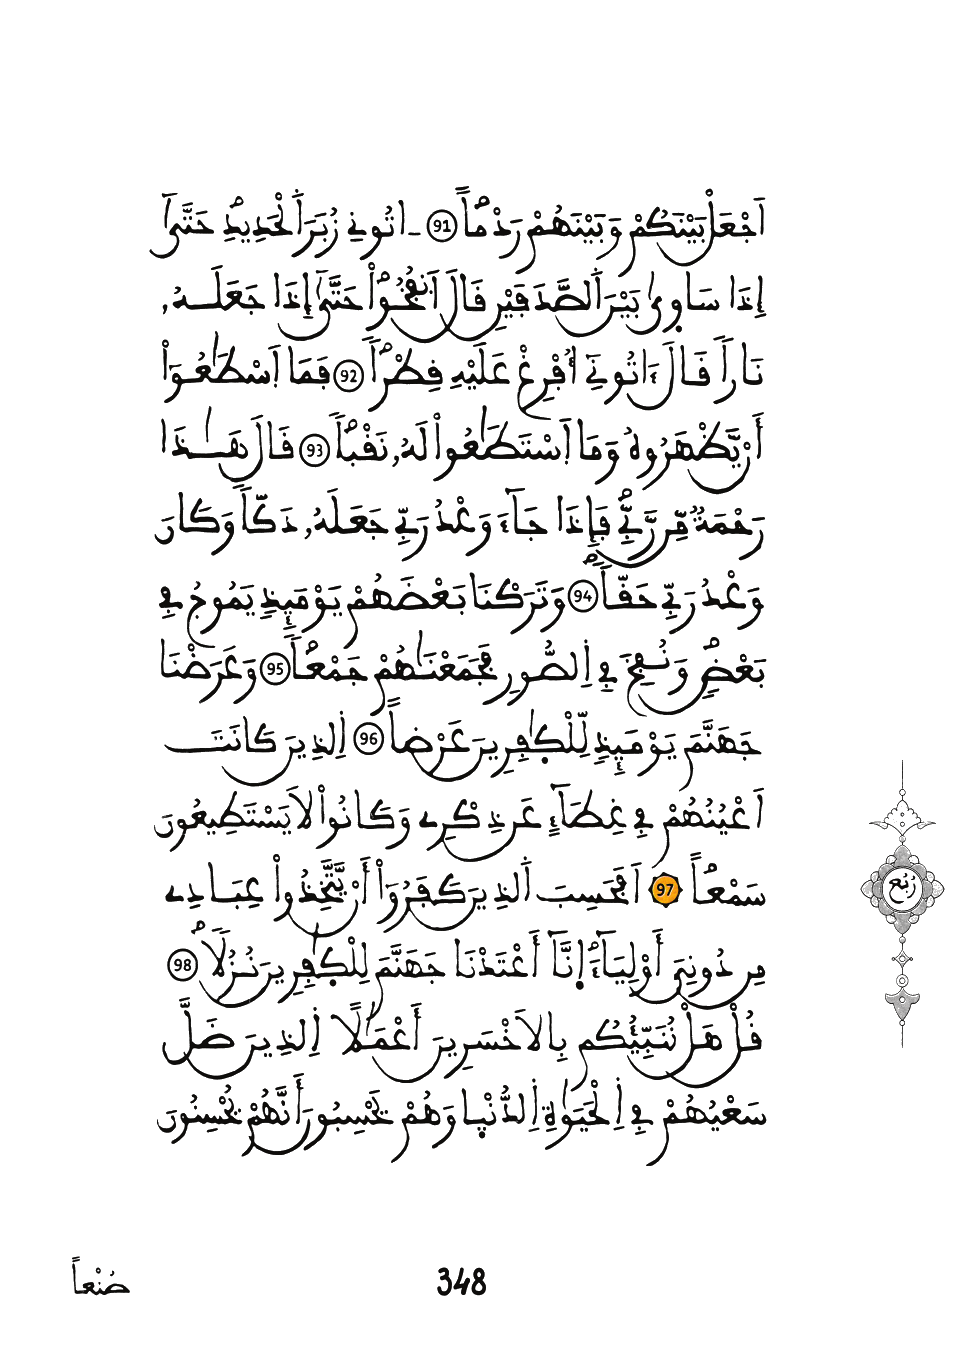 اَجْعَلْ بَيْنَكُمْ وَبَيْنَهُمْ رَدْماًۖ 91 ـ اتُونِے زُبَرَ اَ۬لْحَدِيدِۖ حَتَّىٰٓ
إِذَا سَاو۪ىٰ بَيْنَ اَ۬لصَّدَفَيْنِ قَالَ اَ۟نفُخُواْۖ حَتَّىٰٓ إِذَا جَعَلَهُۥ
نَاراٗ قَالَ ءَاتُونِےٓ أُفْرِغْ عَلَيْهِ قِطْراٗۖ 92 فَمَا اَ۪سْطَٰعُوٓاْ
أَنْ يَّظْهَرُوهُ وَمَا اَ۪سْتَطَٰعُواْ لَهُۥ نَقْباٗۖ 93 قَالَ هَٰذَا
رَحْمَةٞ مِّن رَّبِّےۖ فَإِذَا جَآءَ وَعْدُ رَبِّے جَعَلَهُۥ دَكّاٗ وَكَانَ
وَعْدُ رَبِّے حَقّاٗۖ 94 وَتَرَكْنَا بَعْضَهُمْ يَوْمَئِذٖ يَمُوجُ فِے
بَعْضٖۖ وَنُفِخَ فِے اِ۬لصُّورِ فَجَمَعْنَٰهُمْ جَمْعاٗۖ 95 وَعَرَضْنَا
جَهَنَّمَ يَوْمَئِذٖ لِّلْكٰ۪فِرِينَ عَرْضاً 96 اِ۬لذِينَ كَانَتَ
اَعْيُنُهُمْ فِے غِطَآءٍ عَن ذِكْرِے وَكَانُواْ لَا يَسْتَطِيعُونَ
سَمْعاًۖ 97 اَفَحَسِبَ اَ۬لذِينَ كَفَرُوٓاْ أَنْ يَّتَّخِذُواْ عِبَادِے
مِن دُونِيَ أَوْلِيَآءَۖ إِنَّآ أَعْتَدْنَا جَهَنَّمَ لِلْكٰ۪فِرِينَ نُزُلاٗۖ 98
قُلْ هَلْ نُنَبِّئُكُم بِالَاخْسَرِينَ أَعْمَٰلاً اِ۬لذِينَ ضَلَّ
سَعْيُهُمْ فِے اِ۬لْحَيَوٰةِ اِ۬لدُّنْي۪ا وَهُمْ يَحْسِبُونَ أَنَّهُمْ يُحْسِنُونَ
رُبُع
صُنْعاً
348